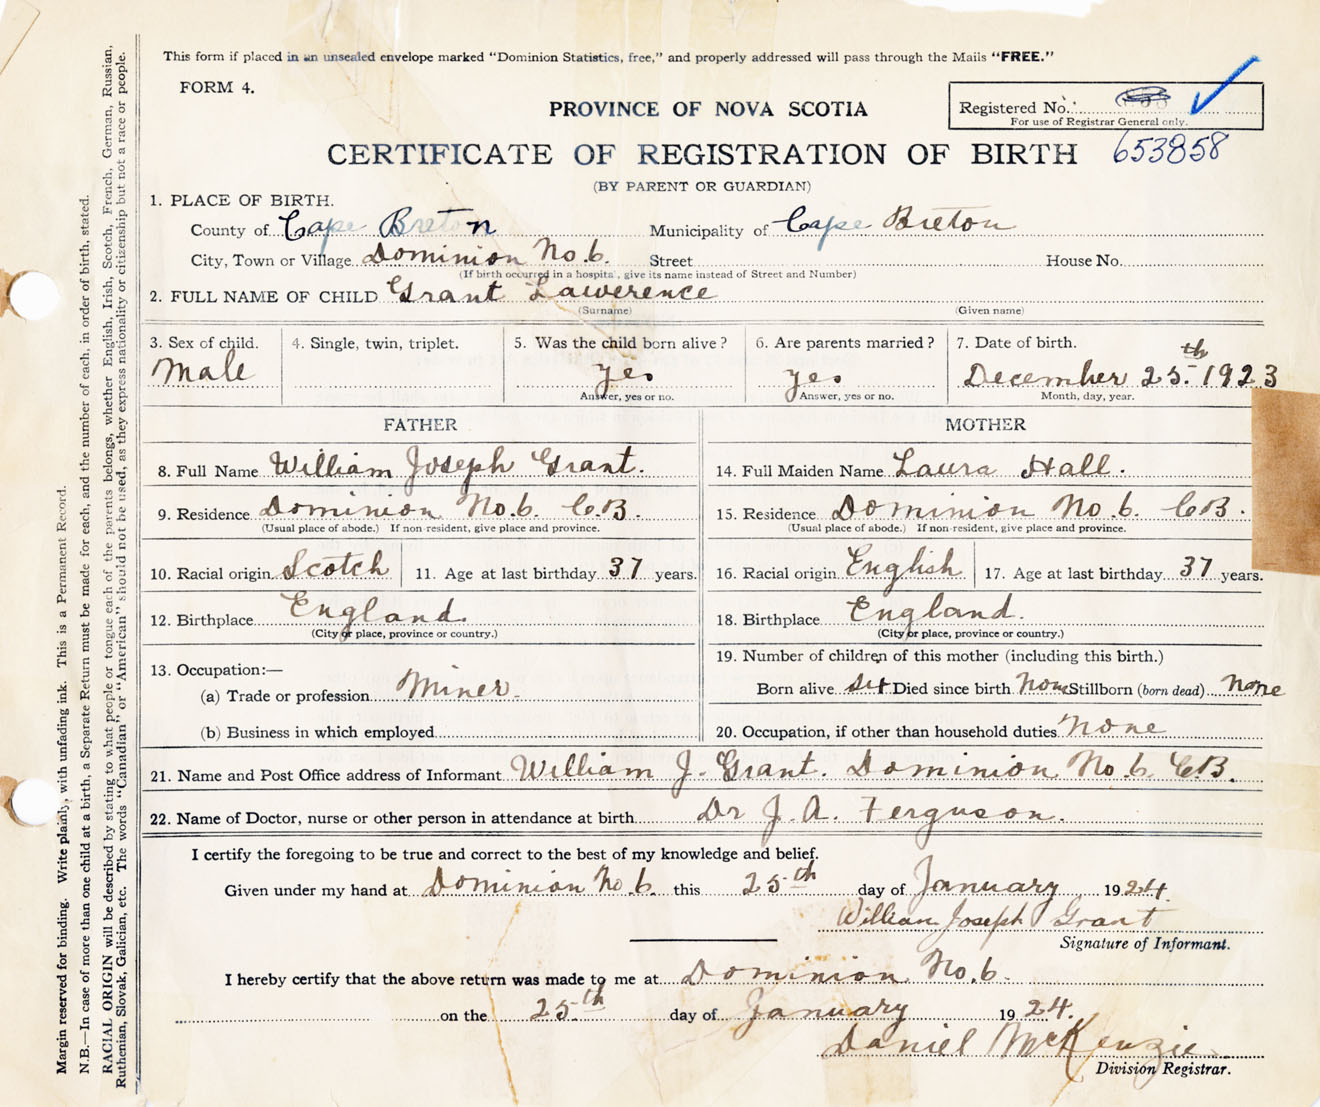 This form if placed in an unsealed envelope marked "Dominion Statistics, free," and properly addressed will pass through the Mails "FREE."
FORM 4.
PROVINCE OF NOVA SCOTIA
Registered No.
For use of Registrar General only.
653858
CERTIFICATE OF REGISTRATION OF BIRTH
(BY PARENT OR GUARDIAN)
1. PLACE OF BIRTH.
County of Cape Breton Municipality of Cape Breton
City, Town or Village Dominion No. 6. Street House No.
(If birth occurred in a hospital, give its name instead of Street and Number)
2. FULL NAME OF CHILD Grant Lawerence
(Surname) (Given name)
3. Sex of child. 4. Single, twin, triplet. 5. Was the child born alive? 6. Are parents married? 7. Date of birth.
Male yes yes December 25th. 1923
Answer, yes or no. Answer, yes or no. Month, day, year.
FATHER MOTHER
8. Full Name William Joseph Grant. 14. Full Maiden Name Laura Hall.
9. Residence Dominion No. 6. C.B. 15. Residence Dominion No. 6. C.B.
(Usual place of abode.) If non-resident, give place and province. (Usual place of abode.) If non-resident, give place and province.
10. Racial origin Scotch 11. Age at last birthday 37 years. 16. Racial origin English 17. Age at last birthday 37 years.
12. Birthplace England. 18. Birthplace England.
(City or place, province or country.) (City or place, province or country.)
13. Occupation:— 19. Number of children of this mother (including this birth.)
(a) Trade or profession Miner. Born alive six Died since birth None Stillborn (born dead) none
(b) Business in which employed 20. Occupation, if other than household duties None
21. Name and Post Office address of Informant William J. Grant. Dominion No. 6. C.B.
22. Name of Doctor, nurse or other person in attendance at birth Dr J. A. Ferguson.
I certify the foregoing to be true and correct to the best of my knowledge and belief.
Given under my hand at Dominion No. 6. this 25th day of January 1924.
William Joseph Grant
Signature of Informant.
I hereby certify that the above return was made to me at Dominion No. 6.
on the 25th day of January 1924.
Daniel McKenzie
Division Registrar.
Margin reserved for binding. Write plainly, with unfading ink. This is a Permanent Record.
N.B.—In case of more than one child at a birth, a Separate Return must be made for each, and the number of each, in order of birth, stated.
RACIAL ORIGIN will be described by stating to what people or tongue each of the parents belongs, whether English, Irish, Scotch, French, German, Russian,
Ruthenian, Slovak, Galician, etc. The words "Canadian" or "American" should not be used, as they express nationality or citizenship but not a race or people.